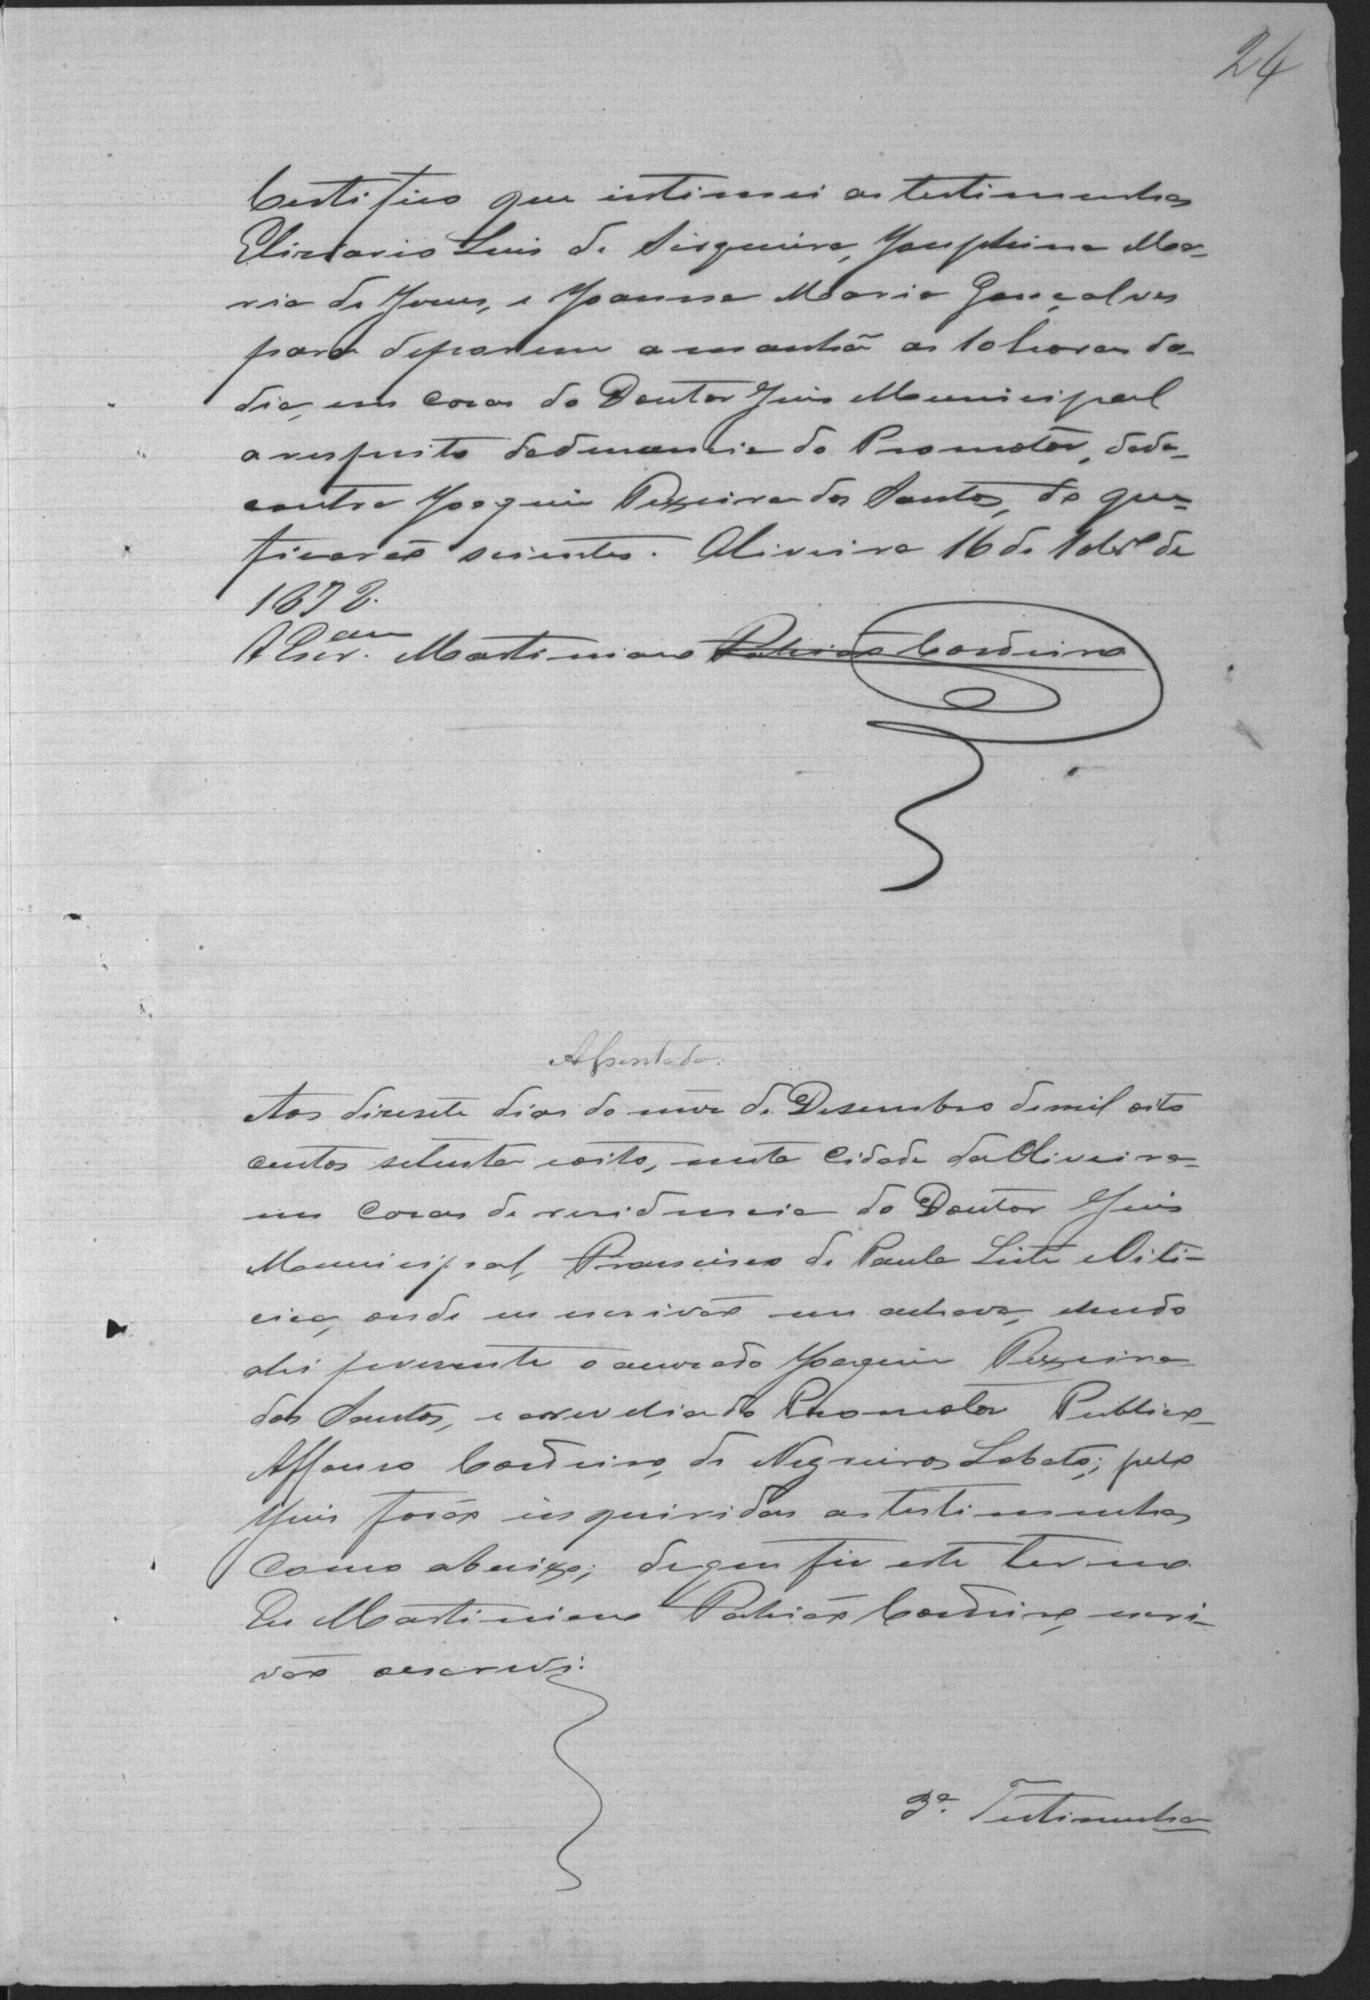 24
Certifico que intimei as testimunhas
Elisiario Luis de Sirqueira, Josephina Ma-
ria de Jesus, e Joanna Maria Gonçalves
para deporem amanhã as 10 horas do
dia, em casa do Doutor Juis Municipal
a respeito da denuncia do Promotor, dada
contra Joaquim Teixeira dos Santos, do que
ficarão scientes. Oliveira 16 de 10brº de
1878.
O Escr.am Martiniano Patricio Cordeiro
Assentada.
Aos diresete dias do mes de Desembro de mil oito
centos setenta eoito, nesta Cidade da Oliveira
em casa de residencia do Doutor Juis
Municipal, Francisco de Paula Leite e Oiti-
cica, onde eu escrivão me achava, e sendo
ahi presente o accusado Joaquim Teixeira
dos Santos, e a revelia do Promotor Publico
Affonso Cordeiro de Negreiros Lobato; pelo
Juis forão inquiridas as testimunhas
como abaixo; do que fis este termo
Eu Martiniano Patricio Cordeiro, escri-
vão o escrevi.
3ª. Testimunha